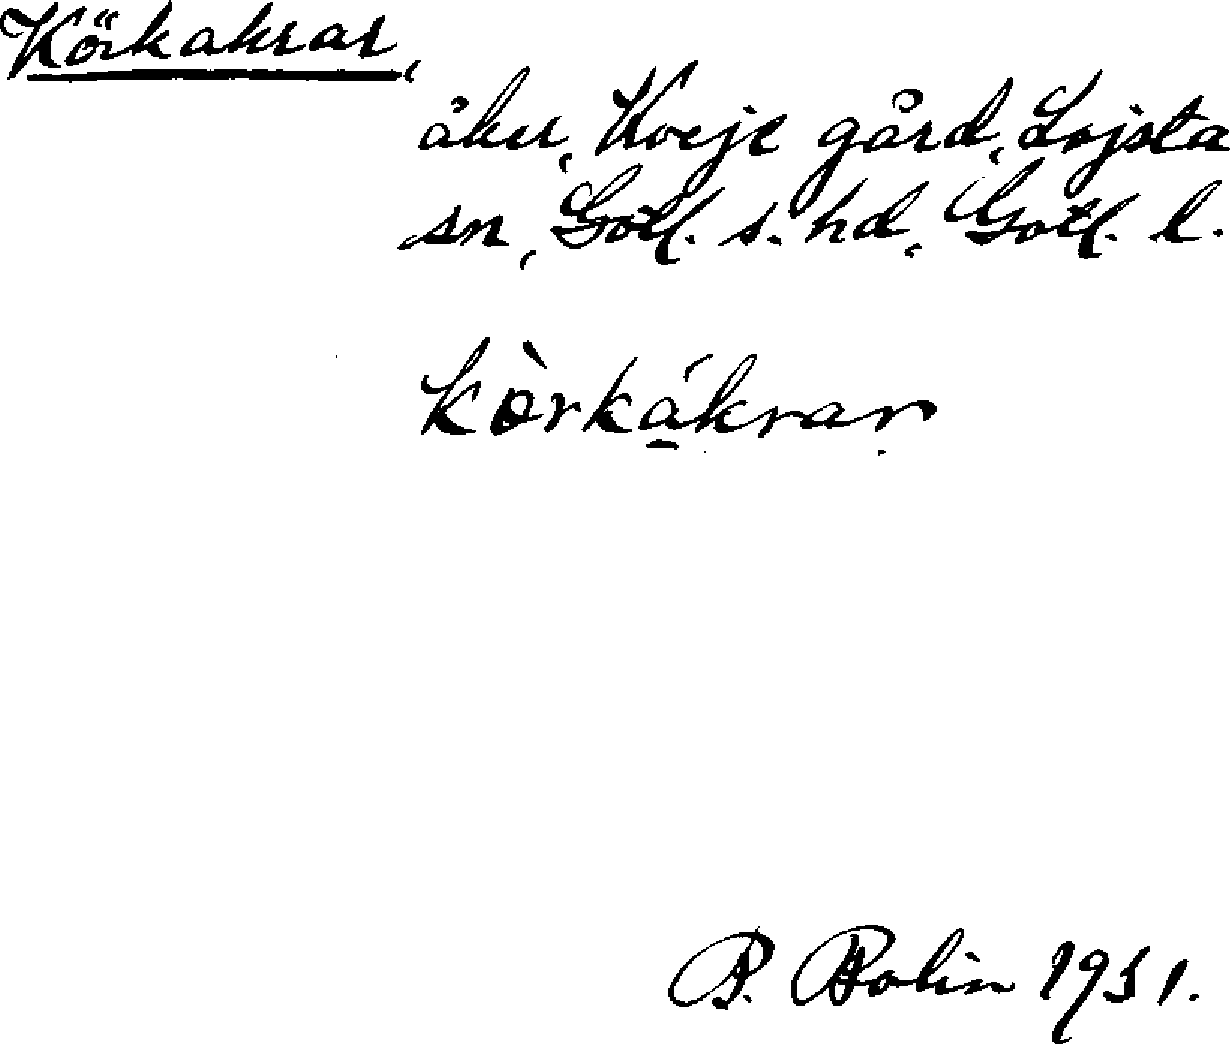 Körkakrar,
åker, Koeje gård, Lojsta
sn, Gotl. s. hd, Gotl. l.
kòrkákrar
P. Bolin 1931.